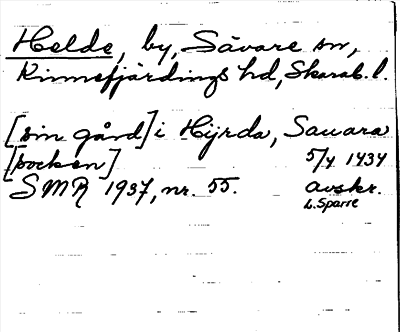 Helde, by, Sävare sn,
Kinnefjärdings hd, Skarab. l.
[sin gård] i Hijrda, Sawara
[socken] 5/4 1434
SMR 1937, nr. 55. avskr.
L. Sparre